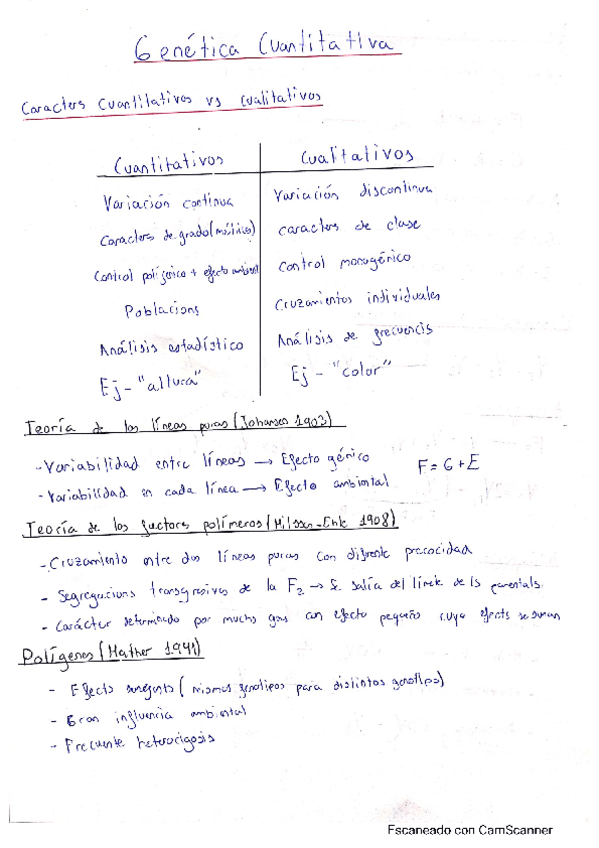 Genética Cuantitativa
Caracters Cuantitativos vs Cualitativos
Cuantitativos
Cualitativos
Variación continua
Variación discontinua
Caracters de grado (métrico)
caracters de clase
Control poligénico + efecto ambient
Control monogénico
Poblacions
Cruzamientos individuales
Análisis estadístico
Análisis de frecuencis
Ej - "altura"
Ej - "color"
Teoría de las líneas puras (Johansen 1903)
- Variabilidad entre líneas → Efecto génico
F = G + E
- Variabilidad en cada línea → Efecto ambiental
Teoría de los factors polímeros (Nilsson-Ehle 1908)
- Cruzamiento entre dos líneas puras con difrente precocidad
- Segregacions transgresivas de la F2 → Se salía del límite de ls parentals
- Carácter determinado por muchs gns con efecto pequeño cuyo efects se suman
Polígenes (Mather 1941)
- Efects semejants (mismos fenotipos para distintos genotipos)
- Gran influencia ambiental
- Frecuente heterocigosis
Escaneado con CamScanner